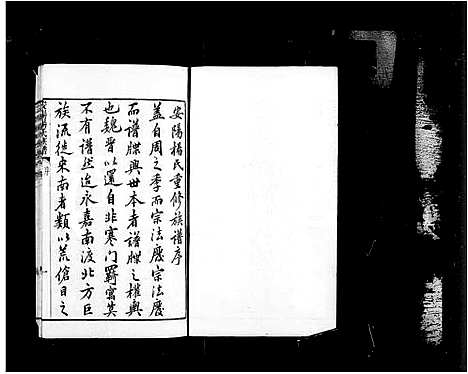 安陽楊氏重修族譜序
蓋自周之季而宗法廢宗法廢
而譜牒興世本者譜牒之權輿
也魏晉以還自非寒門羇寓莫
不有譜然迨永嘉南渡北方巨
族流徙來南者類以荒傖目之